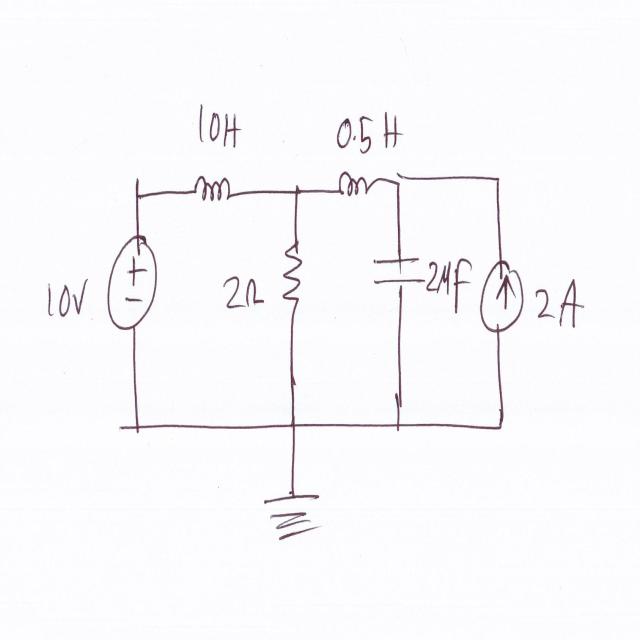 10H
0.5 H
10V
2Ω
2MF
2 A